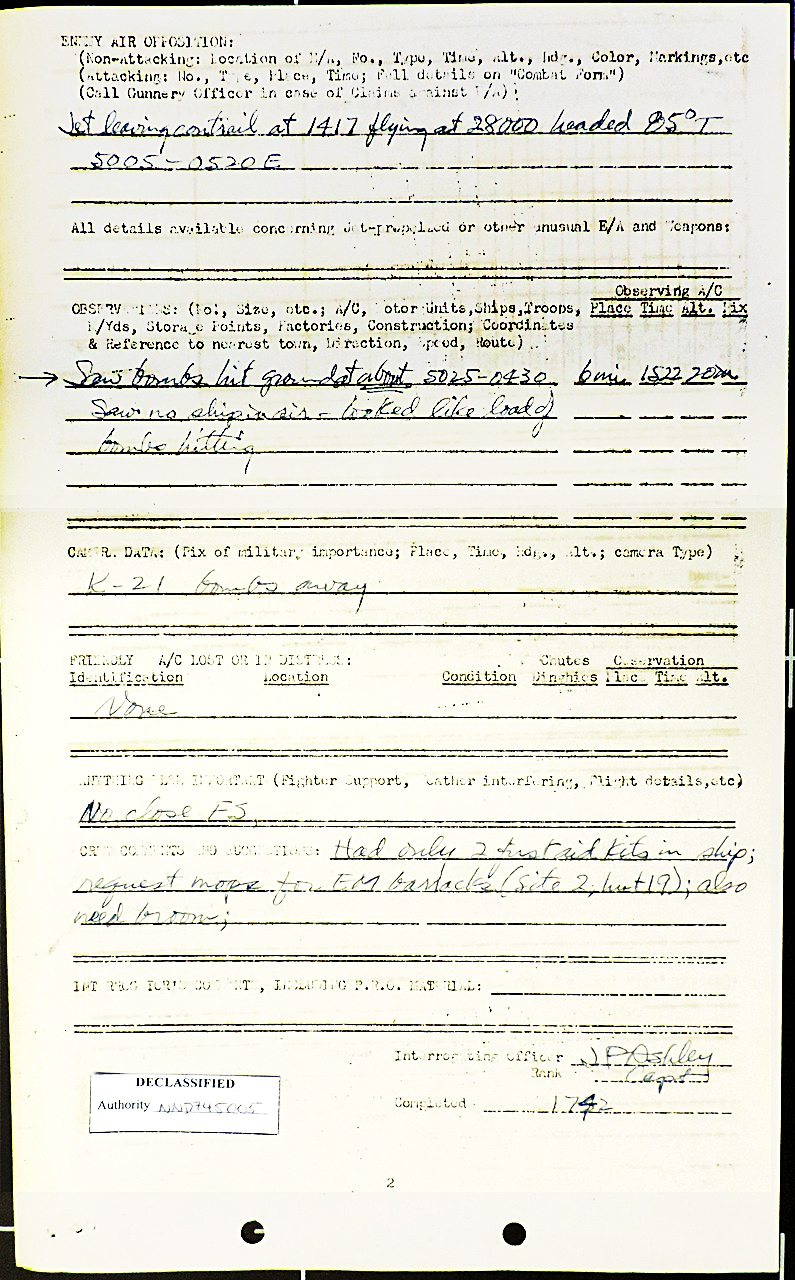 ENEMY AIR OPPOSITION:
(Non-Attacking: Location of E/A, No., Type, Time, Alt., Hdg., Color, Markings, etc
(Attacking: No., Type, Place, Time; Full details on "Combat Form")
(Call Gunnery Officer in case of Claims against E/A):
Jet leaving contrail at 1417 flying at 28000 headed 85° T
5005 - 0520 E
All details available concerning Jet-propelled or other unusual E/A and Weapons:
Observing A/C
OBSERVATIONS: (No., Size, etc.; A/C, Motor Units, Ships, Troops, Place Time Alt. Pix
M/Yds, Storage Points, Factories, Construction; Coordinates
& Reference to nearest town, Direction, Speed, Route)
→ Saw bombs hit ground at about 5025-0430 6 mi. 1522 20m
Saw no ship in air - looked like load of
bombs hitting
CAMERA DATA: (Pix of military importance; Place, Time, Hdg., Alt.; camera Type)
K-21 bombs away
FRIENDLY A/C LOST OR IN DISTRESS: Chutes Observation
Identification Location Condition Dinghies Place Time Alt.
None
ANYTHING ELSE IMPORTANT (Fighter Support, Weather interfering, Flight details, etc)
No close FS.
CREW COMMENTS AND SUGGESTIONS: Had only 2 first aid kits in ship;
request mops for EM barracks (Site 2, hut 19); also
need broom;
INTERROGATOR'S COMMENTS, INCLUDING P.R.O. MATERIAL:
Interrogating Officer J P Ashley
Rank Capt
DECLASSIFIED
Authority NND745005
Completed 1742
2